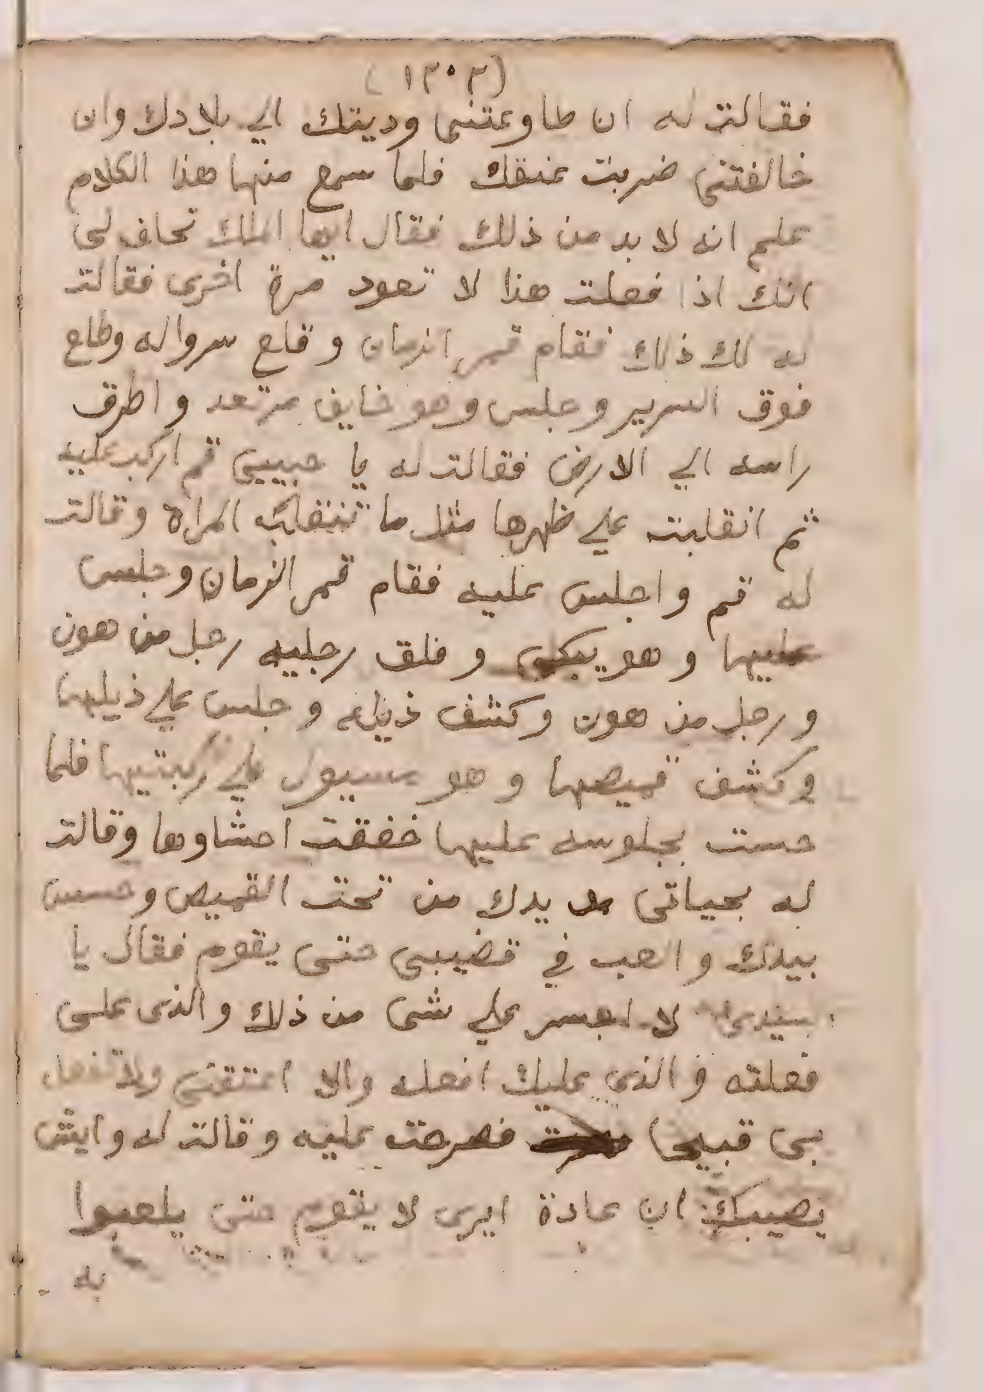 (١٣٠٣)
فقالت له ان طاوعتنى وديتك الي بلادك وان
خالفتنى ضربت عنقك فلما سمع منها هذا الكلام
علم انه لا بد من ذلك فقال ايها الملك تحلف لى
انك اذا فعلت هذا لا تعود مرة اخرى فقالت
له لك ذلك فقام قمر الزمان و قلع سرواله وطلع
فوق السرير وجلس وهو خايف مرتعد و اطرق
راسه الي الارض فقالت له يا حبيبى قم اركب عليه
ثم انقلبت علي ظهرها مثل ما تنقلب المراة وقالت
له قم و اجلس عليه فقام قمر الزمان وجلس
عليها و هو يبكى و فلق رجليه رجل من هون
و رجل من هون و كشف ذيله و جلس علي ذيلها
و كشف قميصها و هو علي ركبتيها فلما
حست بجلوسه عليها خفقت احشاوها وقالت
له بحياتى مد يدك من تحت القميص وحسس
بيدك و العب في قضيبى حتى يقوم فقال يا
سيدى لا اجسر علي شى من ذلك و الذى على
فعلته و الذى عليك افعله والا اعتقنى ولا تفعل
بى قبيحا فصرخت عليه و قالت له وايش
يصيبك ان عادة ايرى لا يقوم حتى يلعبوا
به